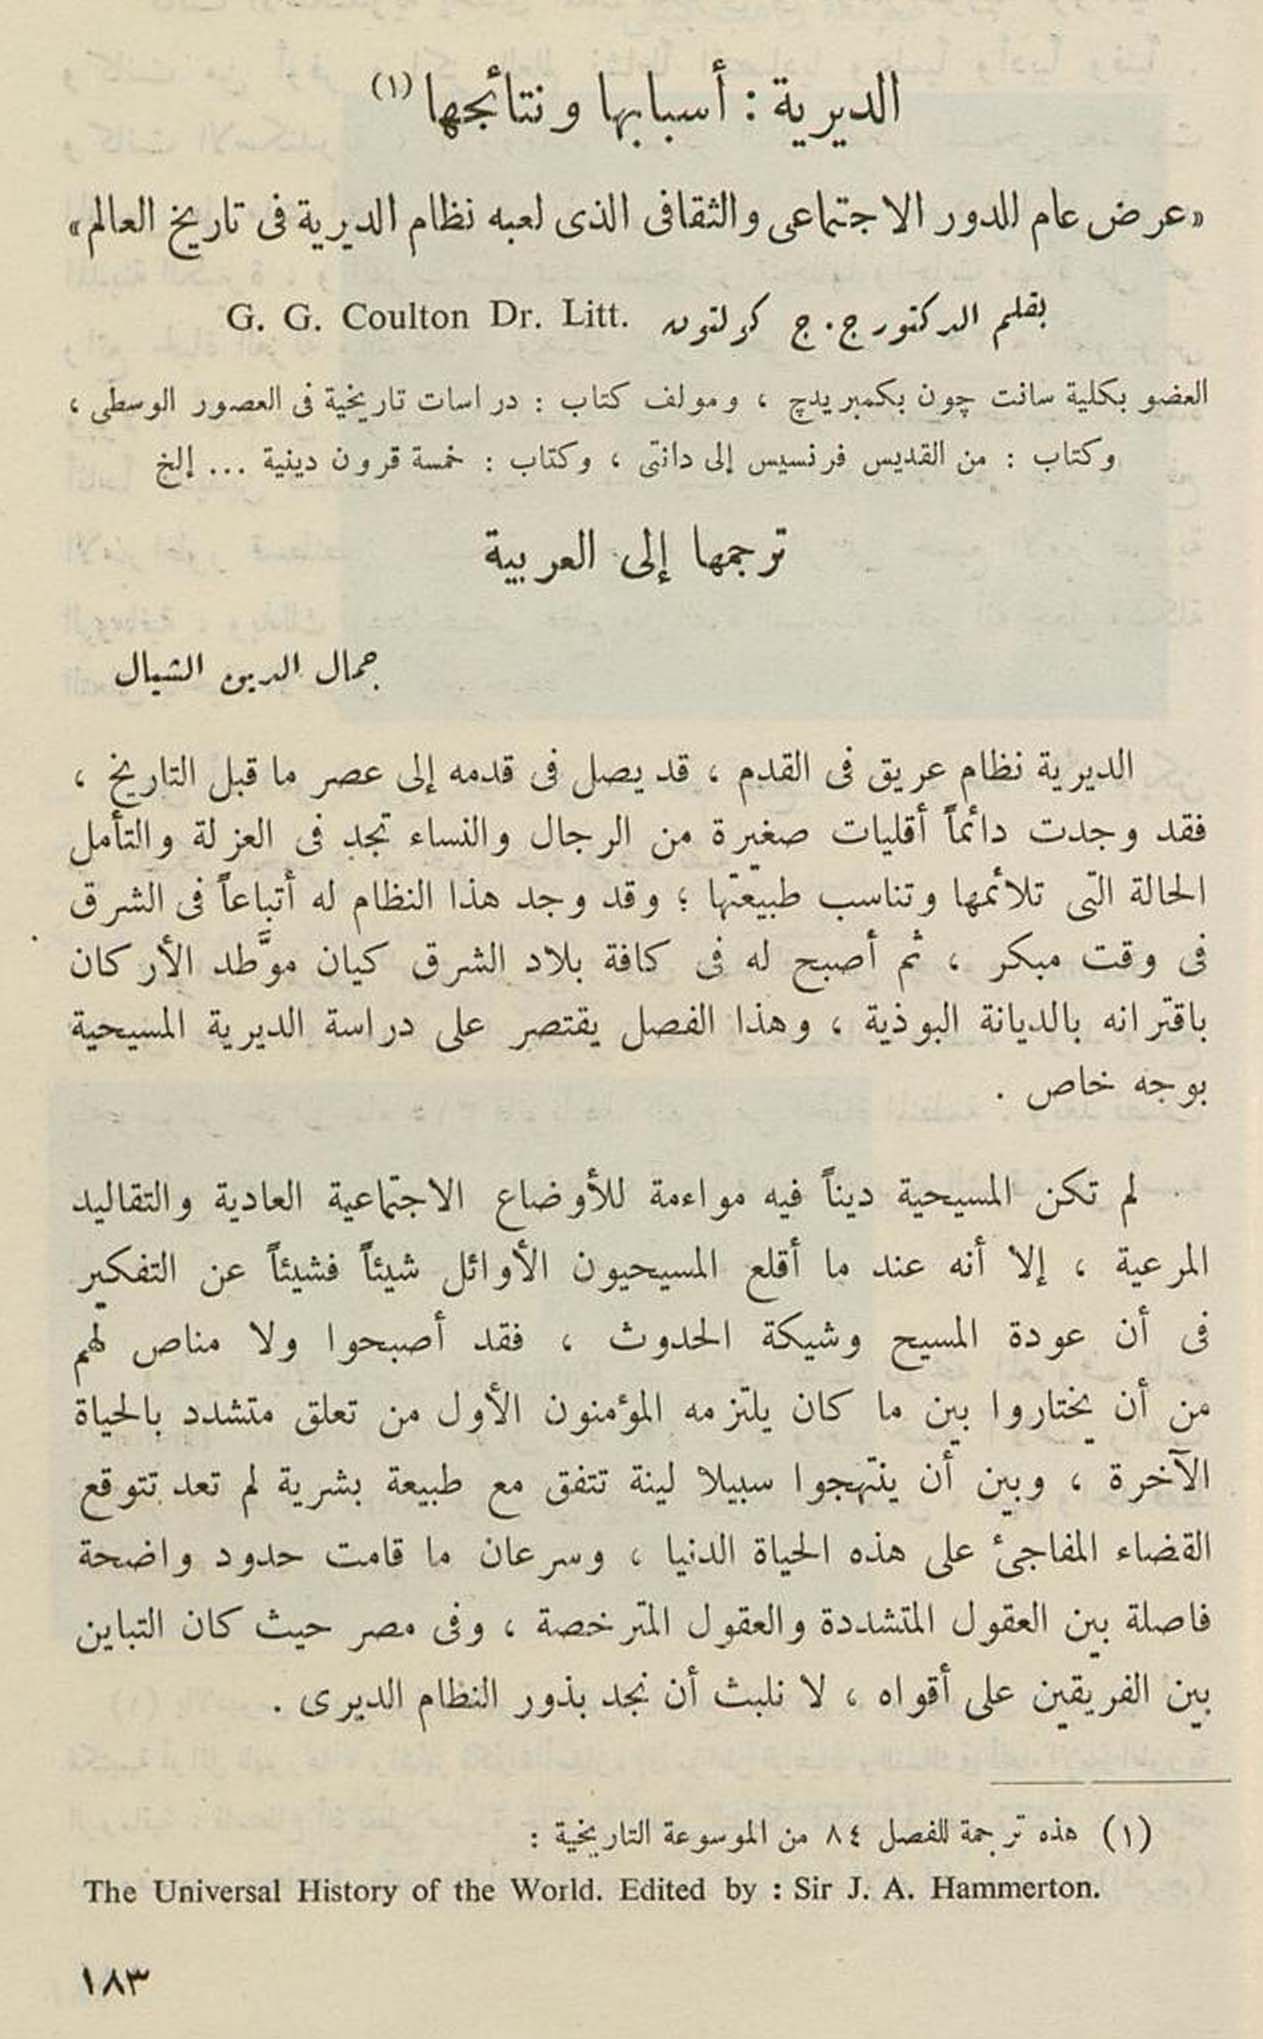 الديرية : أسبابها ونتائجها (١)
«عرض عام للدور الاجتماعى والثقافى الذى لعبه نظام الديرية فى تاريخ العالم»
بقلم الدكتور ج . ج كولتون G. G. Coulton Dr. Litt.
العضو بكلية سانت چون بكمبريدچ ، ومولف كتاب : دراسات تاريخية فى العصور الوسطى ،
وكتاب : من القديس فرنسيس إلى دانتى ، وكتاب : خمسة قرون دينية ... إلخ
ترجمها إلى العربية
جمال الدين الشيال
الديرية نظام عريق فى القدم ، قد يصل فى قدمه إلى عصر ما قبل التاريخ ،
فقد وجدت دائماً أقليات صغيرة من الرجال والنساء تجد فى العزلة والتأمل
الحالة التى تلائمها وتناسب طبيعتها ؛ وقد وجد هذا النظام له أتباعاً فى الشرق
فى وقت مبكر ، ثم أصبح له فى كافة بلاد الشرق كيان موَّطد الأركان
باقترانه بالديانة البوذية ، وهذا الفصل يقتصر على دراسة الديرية المسيحية
بوجه خاص .
لم تكن المسيحية ديناً فيه مواءمة للأوضاع الاجتماعية العادية والتقاليد
المرعية ، إلا أنه عند ما أقلع المسيحيون الأوائل شيئاً فشيئاً عن التفكير
فى أن عودة المسيح وشيكة الحدوث ، فقد أصبحوا ولا مناص لهم
من أن يختاروا بين ما كان يلتزمه المؤمنون الأول من تعلق متشدد بالحياة
الآخرة ، وبين أن ينتهجوا سبيلا لينة تتفق مع طبيعة بشرية لم تعد تتوقع
القضاء المفاجئ على هذه الحياة الدنيا ، وسرعان ما قامت حدود واضحة
فاصلة بين العقول المتشددة والعقول المترخصة ، وفى مصر حيث كان التباين
بين الفريقين على أقواه ، لا نلبث أن نجد بذور النظام الديرى .
(١) هذه ترجمة للفصل ٨٤ من الموسوعة التاريخية :
The Universal History of the World. Edited by : Sir J. A. Hammerton.
١٨٣